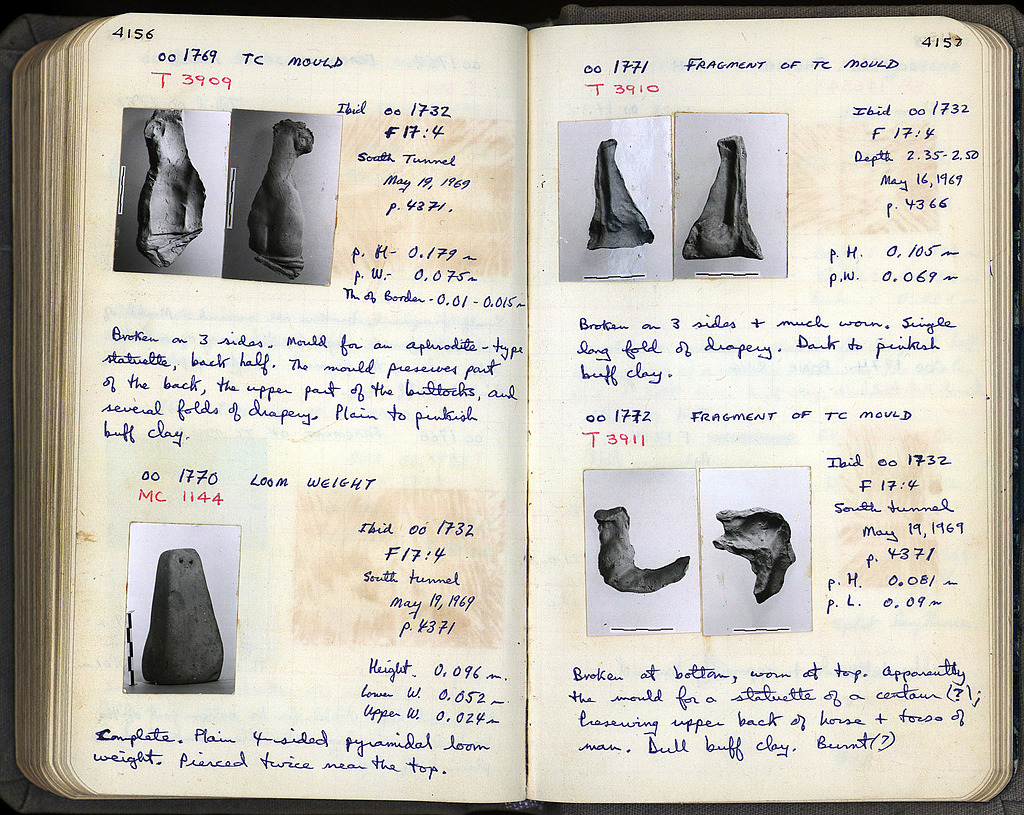 4156
oo 1769 TC MOULD
T 3909
Ibid oo 1732
F 17:4
South Tunnel
May 19, 1969
p. 4371.
p. H - 0.179 m
p. W. - 0.075 m
Th of Border - 0.01 - 0.015 m
Broken on 3 sides. Mould for an aphrodite-type
statuette, back half. The mould preserves part
of the back, the upper part of the buttocks, and
several folds of drapery. Plain to pinkish
buff clay.
oo 1770 LOOM WEIGHT
MC 1144
Ibid oo 1732
F 17:4
South tunnel
May 19, 1969
p. 4371
Height. 0.096 m.
Lower W. 0.052 m.
Upper W. 0.024 m
Complete. Plain 4-sided pyramidal loom
weight. Pierced twice near the top.
4157
oo 1771 FRAGMENT OF TC MOULD
T 3910
Ibid oo 1732
F 17:4
Depth 2.35-2.50
May 16, 1969
p. 4366
p. H. 0.105 m
p. W. 0.069 m
Broken on 3 sides + much worn. Single
long fold of drapery. Dark to pinkish
buff clay.
oo 1772 FRAGMENT OF TC MOULD
T 3911
Ibid oo 1732
F 17:4
South tunnel
May 19, 1969
p. 4371
p. H. 0.081 m
p. L. 0.09 m
Broken at bottom, worn at top. Apparently
the mould for a statuette of a centaur (?);
preserving upper back of horse + torso of
man. Dull buff clay. Burnt (?)